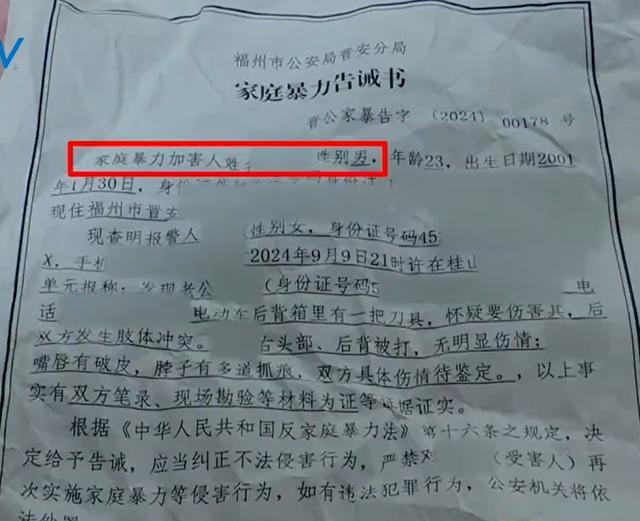 V
福州市公安局晋安分局
家庭暴力告诫书
晋公家暴告字 〔2024〕 00178 号
家庭暴力加害人姓 性别男，年龄23，出生日期2001
年1月30日，
现住福州市晋安
现查明报警人 性别女，身份证号码45
X，手机 2024年9月9日21时许在桂山
单元报称：发现老公 （身份证号码5 电
话 电动车后背箱里有一把刀具，怀疑要伤害其，后
双方发生肢体冲突。 右头部、后背被打，无明显伤情；
嘴唇有破皮，脖子有多道抓痕，双方具体伤情待鉴定。，以上事
实有双方笔录、现场勘验等材料为证等证据证实。
根据《中华人民共和国反家庭暴力法》第十六条之规定，决
定给予告诫，应当纠正不法侵害行为，严禁对 （受害人）再
次实施家庭暴力等侵害行为，如有违法犯罪行为，公安机关将依